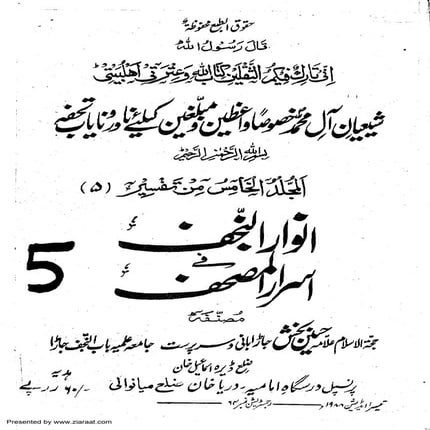 حقوق الطبع محفوظة
قال رسول الله
انی تارک فیکم الثقلین کتاب الله وعترتی اهلبیتی
شیعیان آل محمدؐ خصوصاً واعظین و مبلغین کیلئے نادر و نایاب تحفہ
بسم الله الرحمن الرحیم
المجلد الخامس من تفسیر (۵)
انوار النجف
فی
اسرار المصحف
5
مصنفہ
حجۃ الاسلام علامہ حسین بخش جاڑا بانی و سرپرست جامعہ علمیہ باب النجف جاڑا
ضلع ڈیرہ اسماعیل خان
پرنسپل درسگاہ امامیہ دریا خان ضلع میانوالی
ہدیہ
۶۰/- روپے
تیسرا ایڈیشن ۱۹۸۸
Presented by www.ziaraat.com